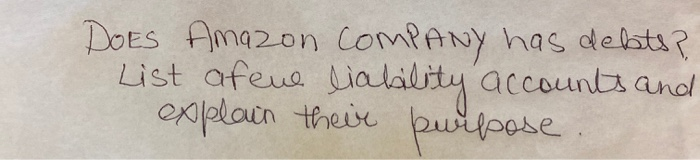 DOES Amazon COMPANY has debts?
List afew liability accounts and
explain their purpose.